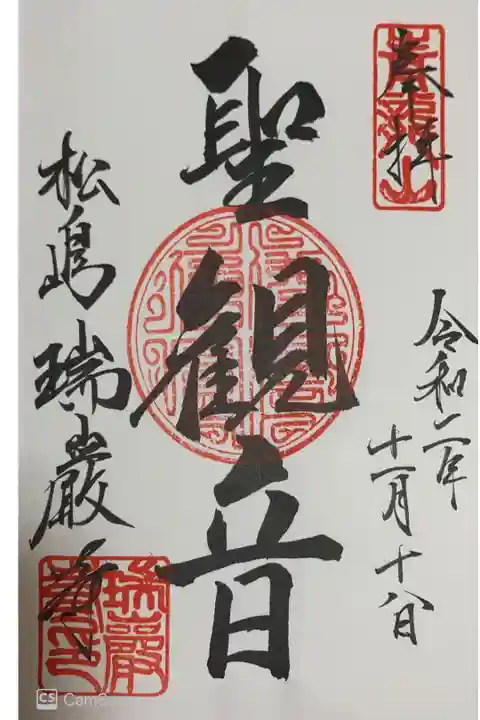 奉拝
令和二年
十一月十八日
聖観音
松嶋瑞巖寺
瑞巖
CS CamS